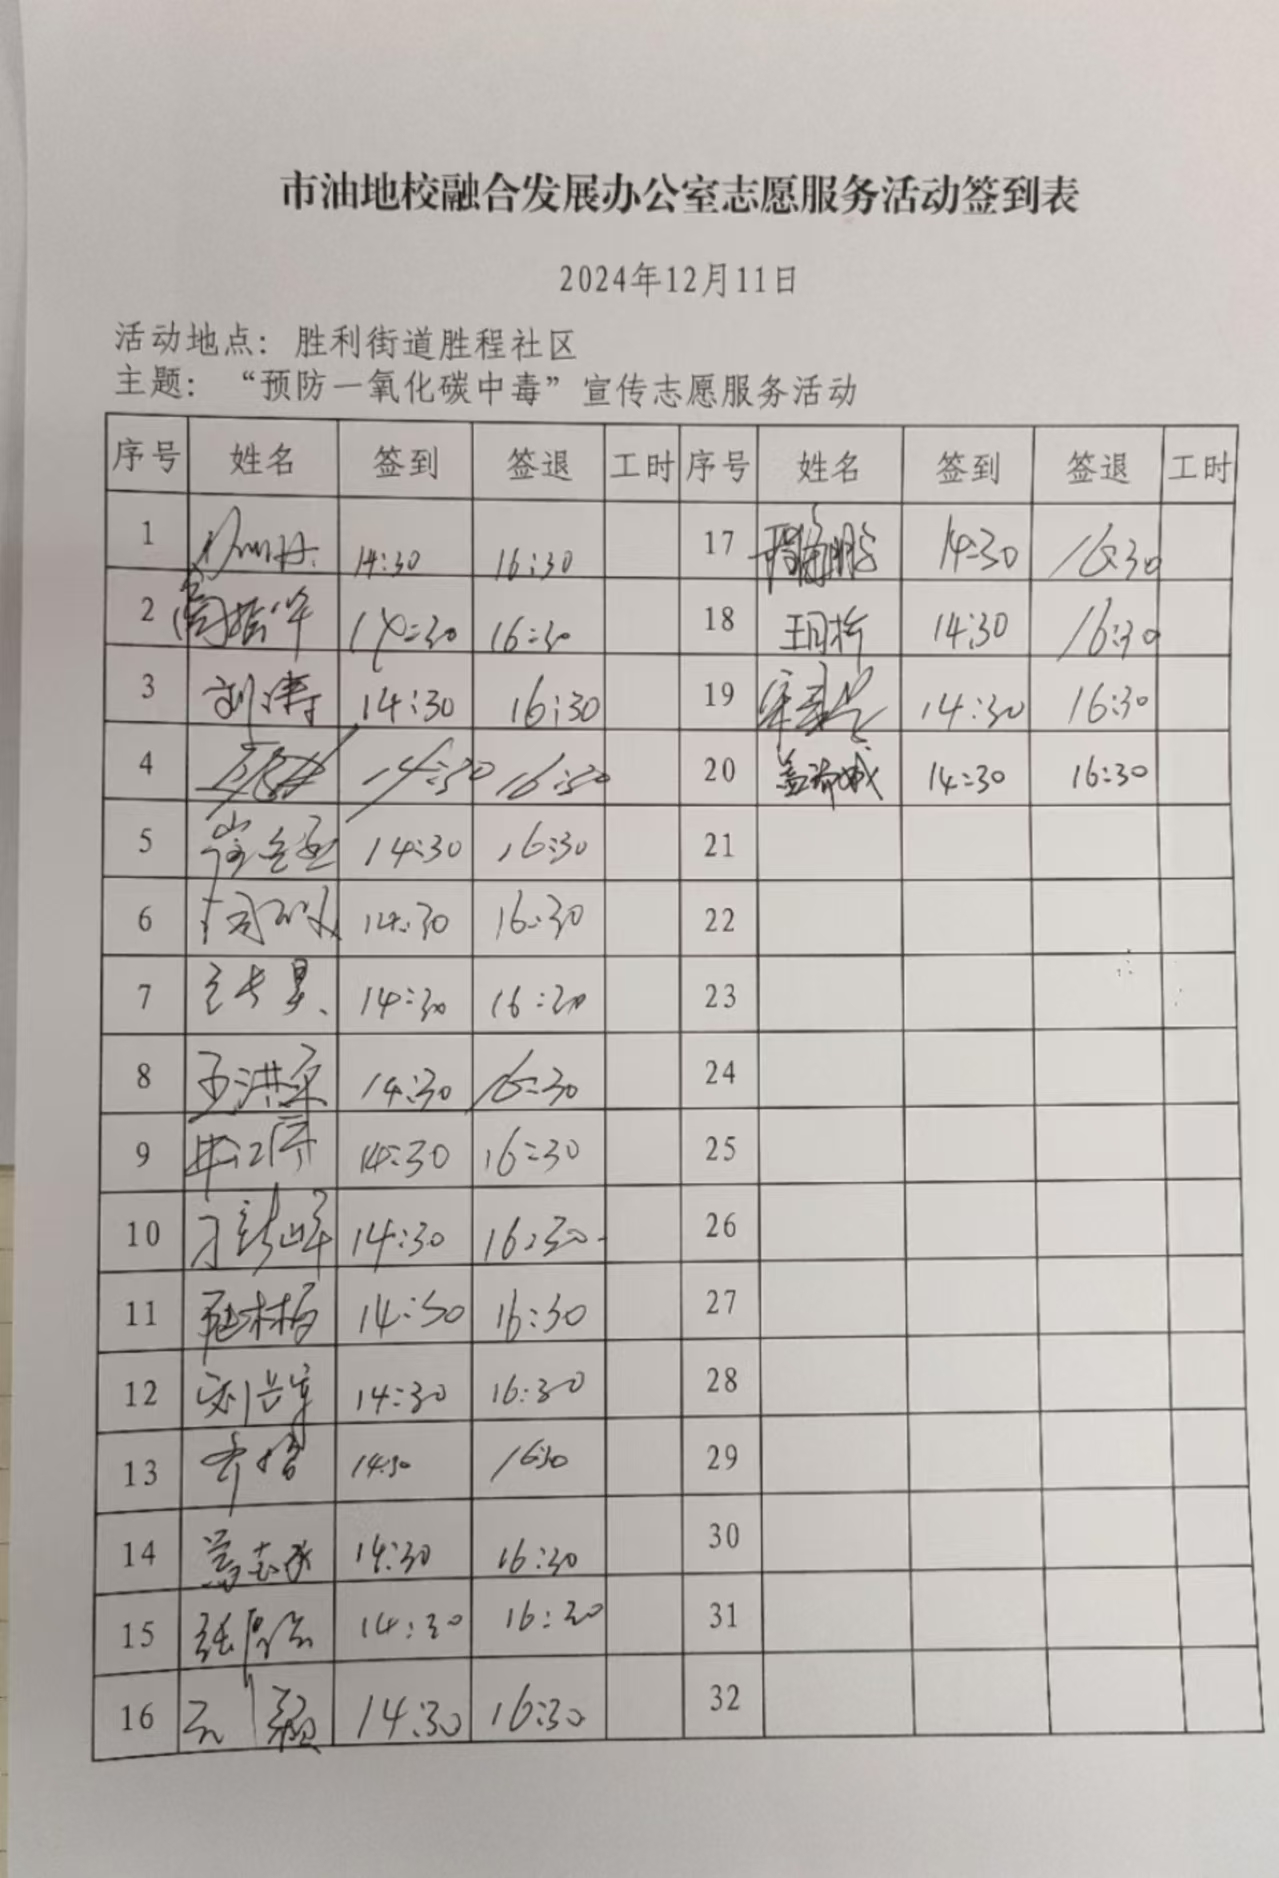 市油地校融合发展办公室志愿服务活动签到表
2024年12月11日
活动地点：胜利街道胜程社区
主题：“预防一氧化碳中毒”宣传志愿服务活动
序号 姓名 签到 签退 工时 序号 姓名 签到 签退 工时
1 14:30 16:30 17 14:30 16:30
2 14:30 16:30 18 14:30 16:30
3 刘涛 14:30 16:30 19 14:30 16:30
4 14:30 16:30 20 14:30 16:30
5 14:30 16:30 21
6 14:30 16:30 22
7 14:30 16:30 23
8 14:30 16:30 24
9 14:30 16:30 25
10 14:30 16:30 26
11 14:30 16:30 27
12 14:30 16:30 28
13 14:30 16:30 29
14 14:30 16:30 30
15 14:30 16:30 31
16 14:30 16:30 32